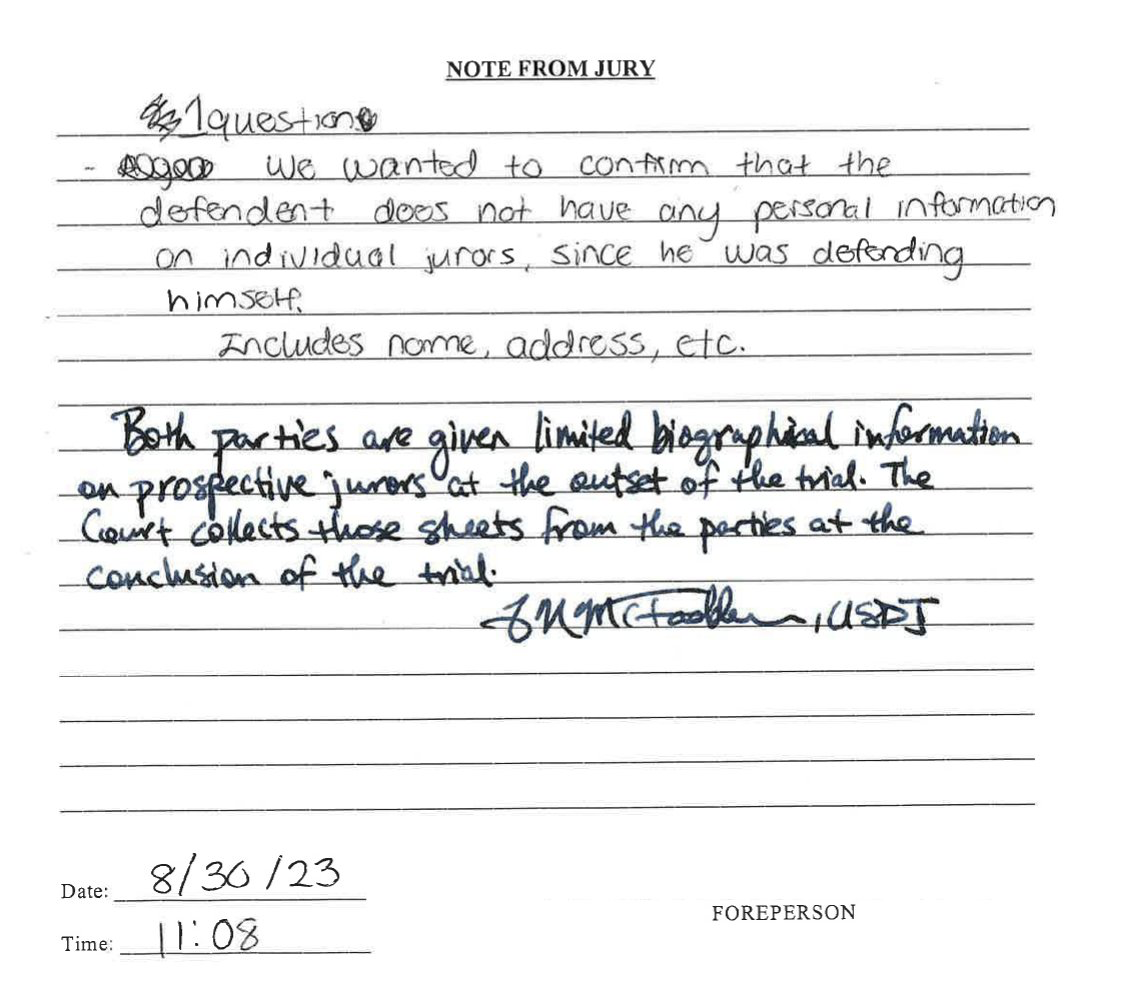 NOTE FROM JURY
1 question
- We wanted to confirm that the
defendent does not have any personal information
on individual jurors, since he was defending
himself.
Includes name, address, etc.
Both parties are given limited biographical information
on prospective jurors at the outset of the trial. The
Court collects those sheets from the parties at the
conclusion of the trial.
McFadden, USDJ
Date: 8/30/23
FOREPERSON
Time: 11:08